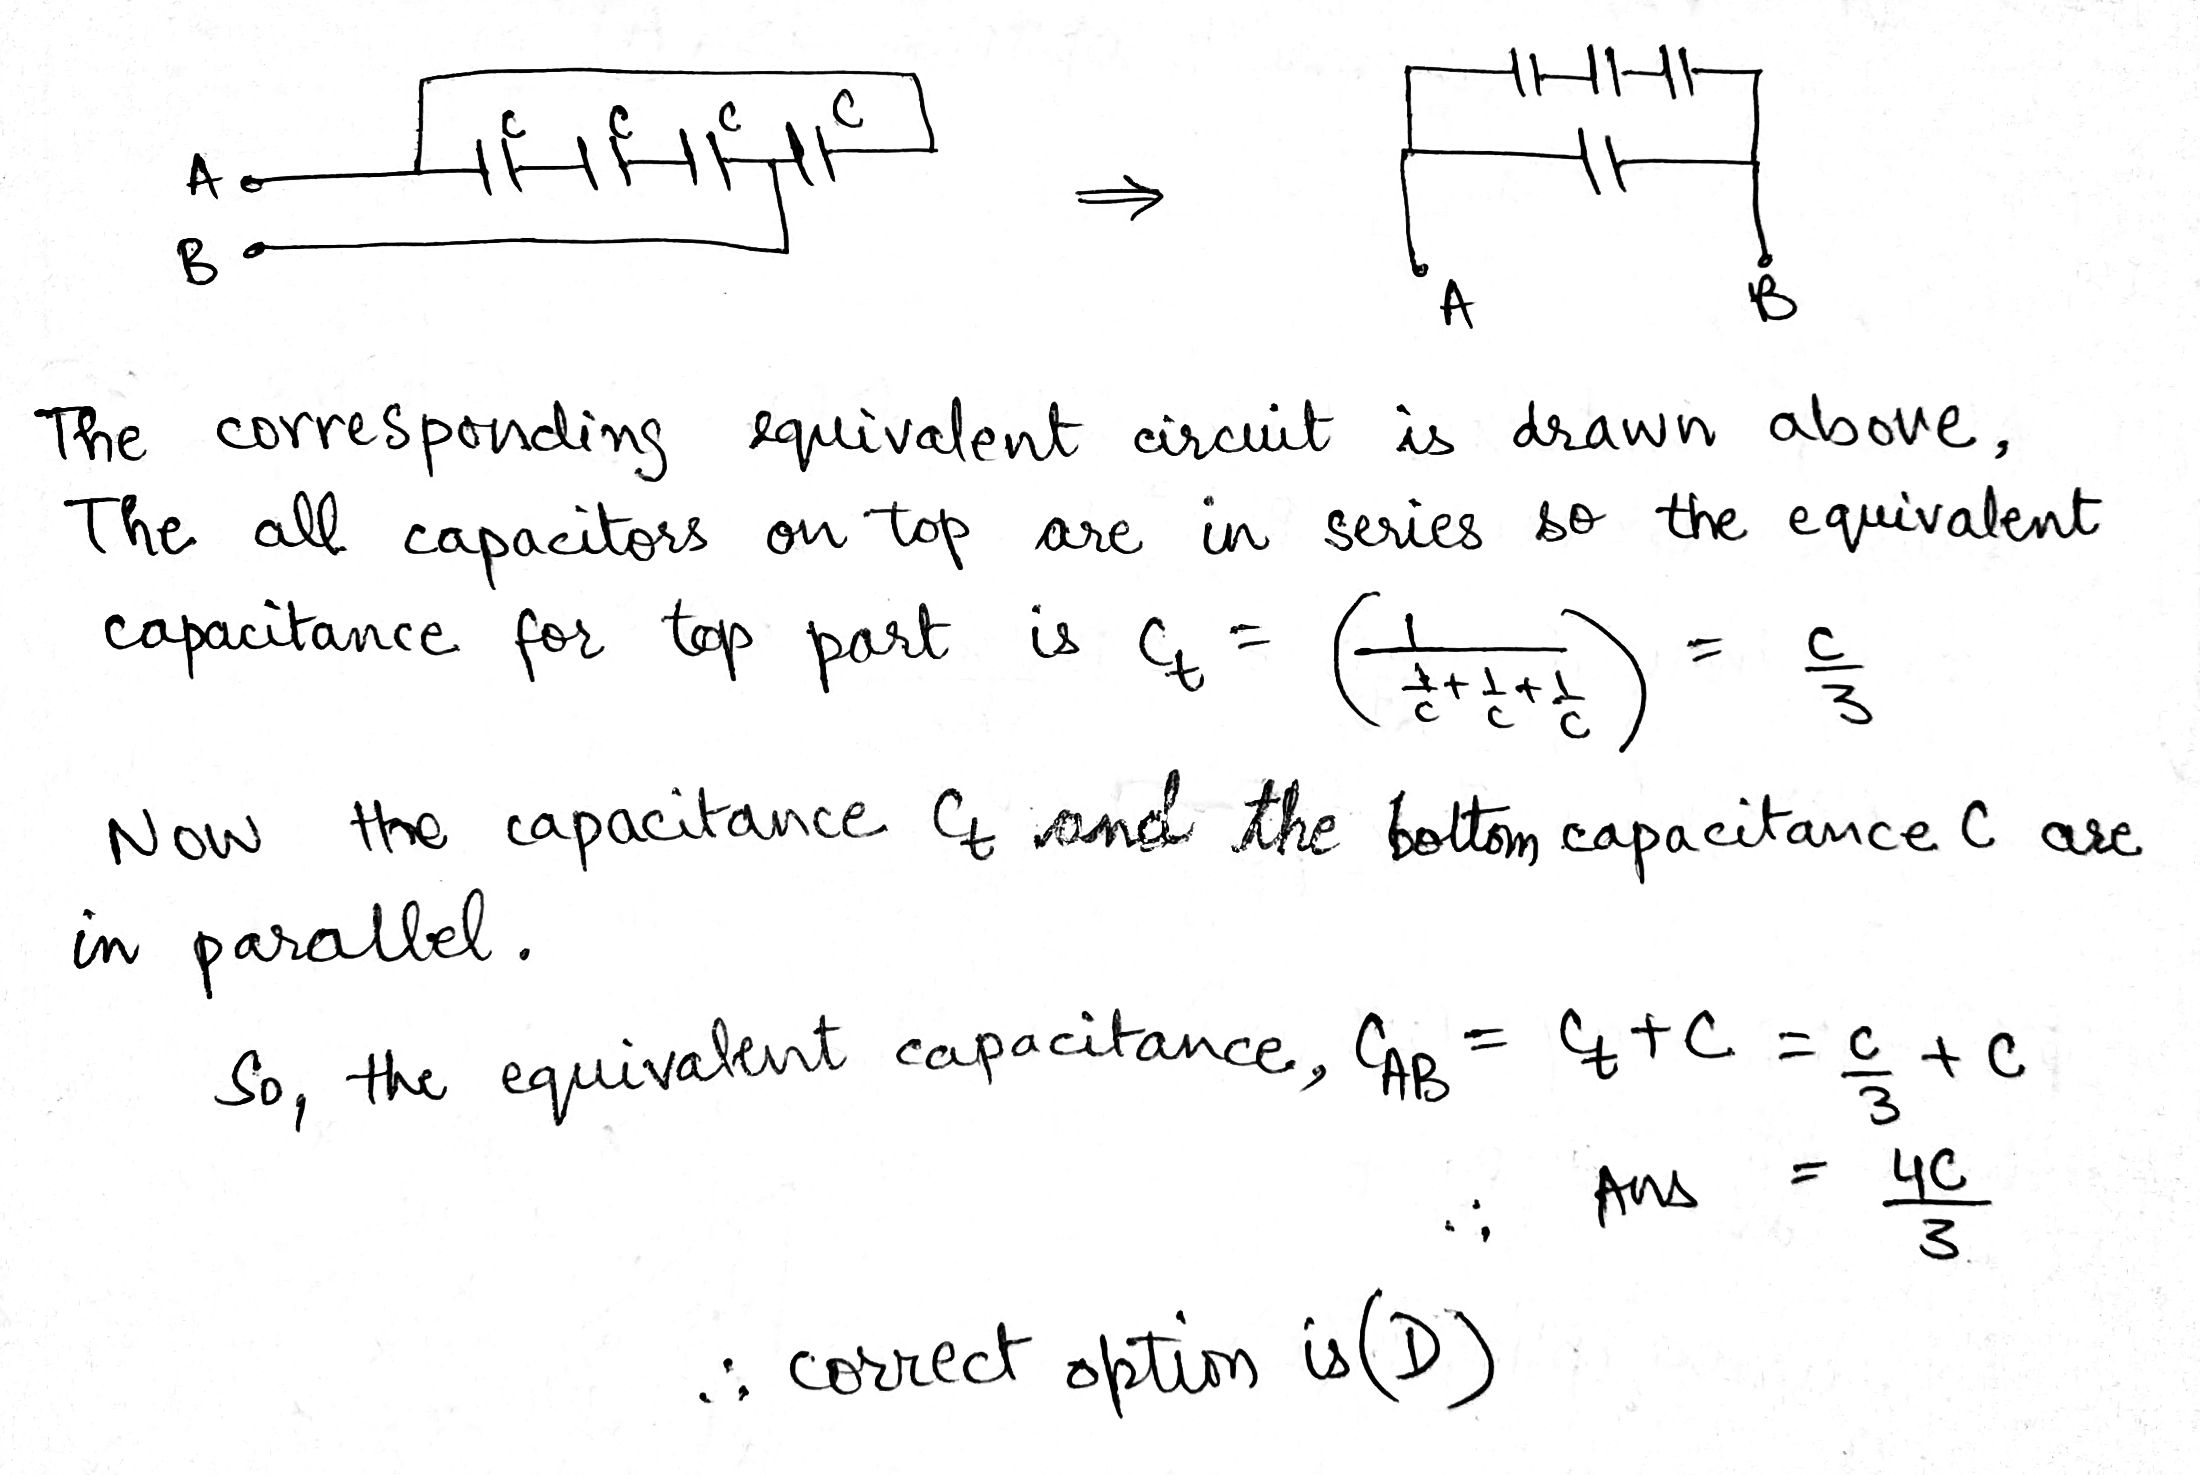 C C C C
A
B
⇒
A B
The corresponding equivalent circuit is drawn above,
The all capacitors on top are in series so the equivalent
capacitance for top part is C_t = (1/(1/C + 1/C + 1/C)) = C/3
Now the capacitance C_t and the bottom capacitance C are
in parallel.
So, the equivalent capacitance, C_AB = C_t + C = C/3 + C
∴ Ans = 4C/3
∴ correct option is (D)